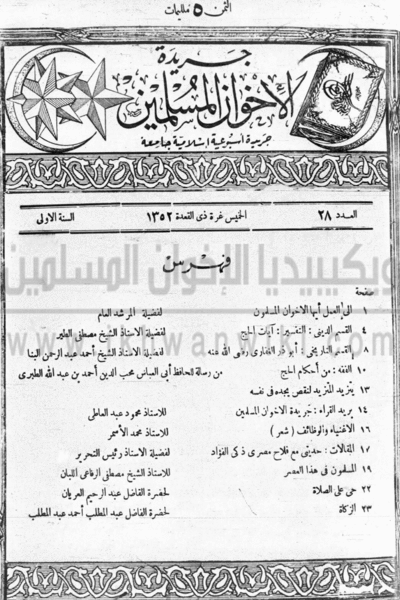 الثمن ٥ مليمات
جريدة
الإخوان المسلمين
جريدة أسبوعية إسلامية جامعة
العدد ٢٨ الخميس غرة ذى القعدة ١٣٥٢ السنة الاولى
فهرس
صفحة
١ الى العمل أيها الاخوان المسلمون لفضيلة المرشد العام
٤ القسم الدينى : التفسير : آيات الحج لفضيلة الاستاذ الشيخ مصطفى الطير
٨ القسم التاريخى : أبو ذر الغفارى رضى الله عنه لفضيلة الاستاذ الشيخ أحمد عبد الرحمن البنا
١٠ الفقه : من أحكام الحج من رسالة للحافظ أبى العباس محب الدين أحمد بن عبد الله الطبرى
١٣ يتزيد المتزيد لنقص يجده فى نفسه
١٤ بريد القراء : جريدة الاخوان المسلمين للاستاذ محمود عبد العاطى
١٦ الاغنياء والوظائف ( شعر ) للاستاذ محمد الأسمر
١٧ المقالات : حديثى مع فلاح مصرى ذكى الفؤاد لفضيلة الاستاذ رئيس التحرير
١٩ المسلمون فى هذا العصر للاستاذ الشيخ مصطفى الرفاعى اللبان
٢٢ حى على الصلاة لحضرة الفاضل عبد الرحيم العريان
٢٣ الزكاة لحضرة الفاضل عبد المطلب أحمد عبد المطلب
ويكيبيديا الإخوان المسلمين